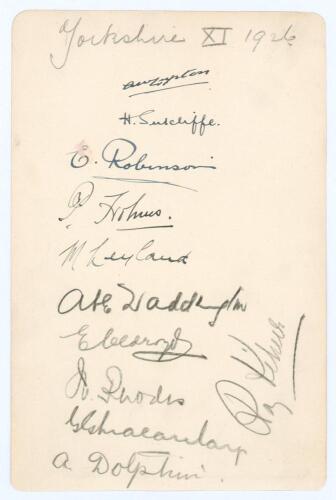 Yorkshire XI 1926
A W Lupton
H. Sutcliffe.
E. Robinson
P. Holmes.
M Leyland
Abe Waddington
E Oldroyd
W. Rhodes
G G Macaulay
A. Dolphin.
Roy Kilner